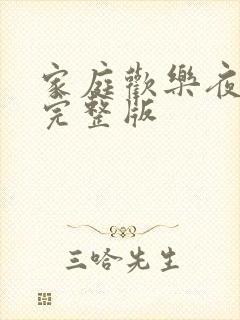 家庭歡樂夜
完整版
三哈先生